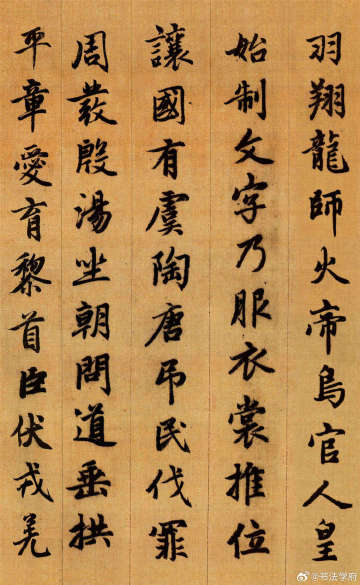 羽翔龍師火帝鳥官人皇
始制文字乃服衣裳推位
讓國有虞陶唐吊民伐罪
周發殷湯坐朝問道垂拱
平章愛育黎首臣伏戎羌
@书法学府